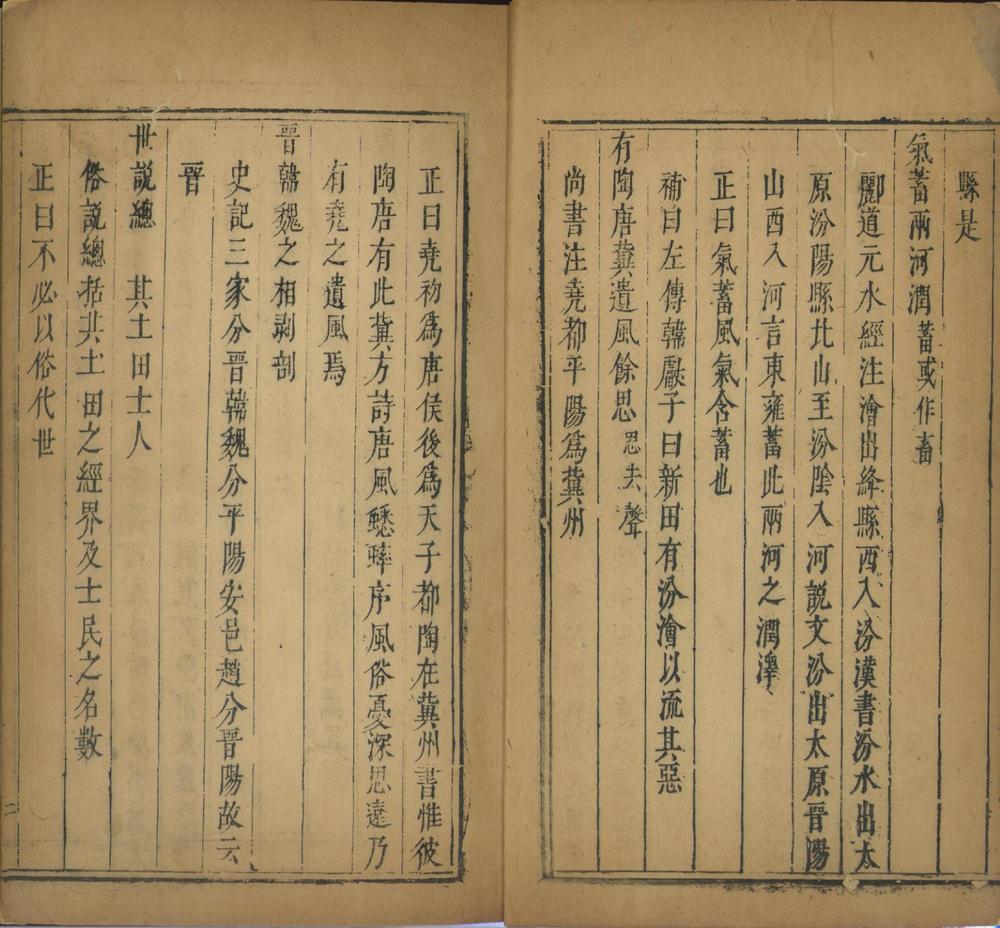 縣是
氣蓄兩河潤蓄或作畜
酈道元水經注澮出絳縣西入汾漢書汾水出太
原汾陽縣北山至汾陰入河說文汾出太原晉陽
山西入河言東雍蓄此兩河之潤澤
正曰氣蓄風氣含蓄也
補曰左傳韓獻子曰新田有汾澮以流其惡
有陶唐冀遺風餘思思去聲
尚書注堯都平陽爲冀州
正曰堯初爲唐侯後爲天子都陶在冀州書惟彼
陶唐有此冀方詩唐風蟋蟀序風俗憂深思遠乃
有堯之遺風焉
晉韓魏之相剥剖
史記三家分晉韓魏分平陽安邑趙分晉陽故云
晉
世說總 其土田士人
俗說總括其土田之經界及士民之名數
正曰不必以俗代世
二